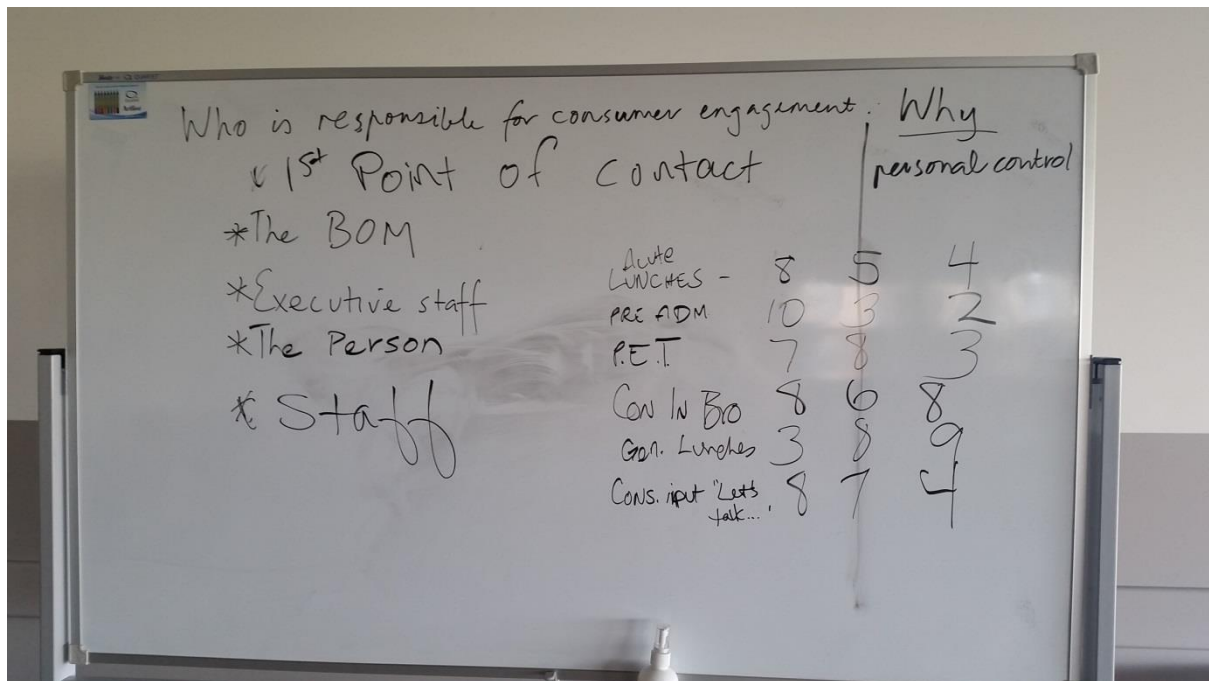 Who is responsible for consumer engagement: Why
1st Point of contact
personal control
*The BOM
*Executive staff
*The Person
* Staff
Acute
LUNCHES - 8 5 4
PRE ADM 10 3 2
P.E.T. 7 8 3
Con In Bro 8 6 8
Gen. Lunches 3 8 9
Cons. input "Let's 8 7 4
talk..."